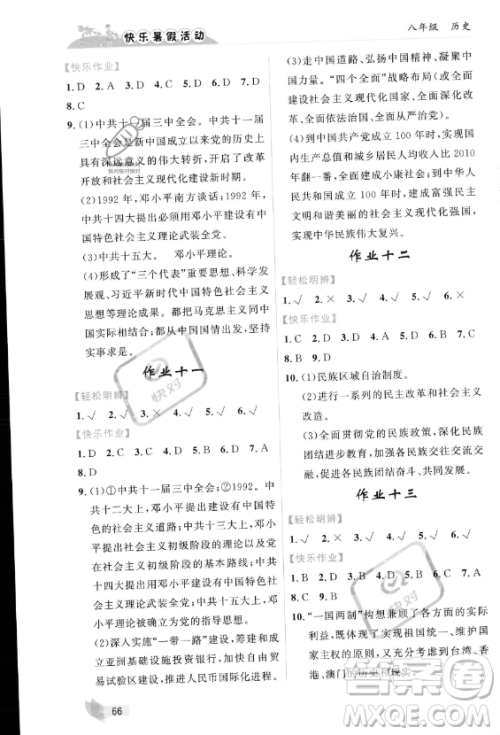 快乐暑假活动
八年级 历史
【快乐作业】
1. D 2. D 3. A 4. D 5. A 6. D 7. A
8. C
9. (1)中共十一届三中全会。中共十一届
三中全会是新中国成立以来党的历史上
具有深远意义的伟大转折,开启了改革
开放和社会主义现代化建设新时期。
(2)1992年,邓小平南方谈话;1992年,
中共十四大,邓小平提出必须用邓小平建设有中
国特色社会主义理论武装全党。
(3)中共十五大。 邓小平理论。
(4)形成了“三个代表”重要思想、科学发
展观、习近平新时代中国特色社会主义
思想等理论成果。都是马克思主义中
国化的成果,都从中国国情出发,坚持
实事求是。
作业十一
【轻松明辨】
1. √ 2. √ 3. × 4. √ 5. √ 6. √
【快乐作业】
1. D 2. A 3. C 4. C 5. D 6. B 7. B
8. D
9. (1)①中共十一届三中全会;②1992。中
共十二大上,邓小平提出建设有中国特
色的社会主义;中共十三大提出了社会
主义初级阶段的理论和党在社会主义
初级阶段的基本路线;1992年,中共
十四大提出用邓小平建设有中国特色社会
主义理论武装全党;中共十五大把邓小
平理论确立为党的指导思想。
(2)深入实施“一带一路”建设,倡议
成立亚洲基础设施投资银行,设立自由贸
易试验区,推动人民币国际化进程等。
(3)走中国道路、弘扬中国精神、凝聚中国
力量。“四个全面”战略布局(全面
建设社会主义现代化国家、全面深化改
革、全面依法治国、全面从严治党)。
(4)到中国共产党成立100年时,实现国
内生产总值和城乡居民人均收入比2010
年翻一番,全面建成小康社会;到新中
国成立100年时,建成富强民主文明和
谐美丽的社会主义现代化强国,
实现中华民族伟大复兴。
作业十二
【轻松明辨】
1. √ 2. × 3. √ 4. √ 5. √ 6. ×
【快乐作业】
1. C 2. D 3. C 4. D 5. B 6. A 7. D
8. D 9. B
10. (1)民族区域自治制度。
(2)进行一系列的民主改革和社会主义
改造。
(3)全面贯彻党的民族政策,加强民族
团结,促进民族地区经济社会发展等。
作业十三
【轻松明辨】
1. √ 2. × 3. √ 4. √ 5. √ 6. √
【快乐作业】
1. C 2. D 3. D 4. B 5. D 6. A 7. B
8. D 9. D
10. “一国两制”构想兼顾了各方的实际
利益,既体现了实现祖国统一、维护国家
主权的原则,又充分考虑到台湾、香
港、澳门的历史和现实。
66